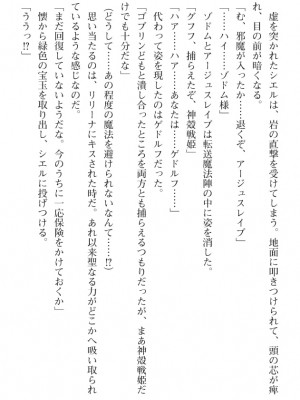 虚を突かれたシエルは、岩の直撃を受けてしまう。地面に叩きつけられて、頭の芯が痺
れ、目の前が暗くなる。
「む、邪魔が入ったか……退くぞ、アージュスレイブ」
「……ハイ……ゾドム様」
ゾドムとアージュスレイブは転送魔法陣の中に姿を消した。
「グフフ、捕らえたぞ、神殻戦姫」
「ハァ……ハァ……あなたは……ゲドルフ……」
代わって姿を現したのはゲドルフだ。
「ゴブリンどもと潰し合ったところを両方とも捕らえるつもりだったが、まあ神殻戦姫だ
けでも十分だな」
（どうして……あの程度の魔法を避けられないなんて……!?）
思い当たるのは、リリーナにキスされた時だ。あれ以来聖なる力がどこかへ吸い取られ
ているような感じなのだ。
「まだ回復していないようだな。今のうちに一応保険をかけておくか」
懐から緑色の宝玉を取り出し、シエルに投げつける。
「ううっ!?」